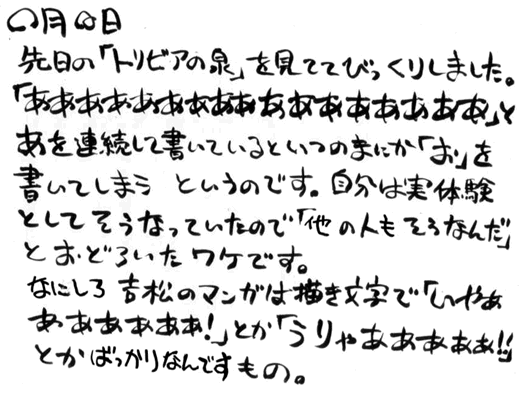 〇月〇日
先日の「トリビアの泉」を見ててびっくりしました。
「あああああああああああああああああ」と
あを連続して書いているといつのまにか「お」を
書いてしまう というのです。自分は実体験
としてそうなっていたので「他の人もそうなんだ」
とおどろいたワケです。
なにしろ吉松のマンガは描き文字で「いやぁ
ああああああ!」とか「うりゃあああああ!!」
とかばっかりなんですもの。